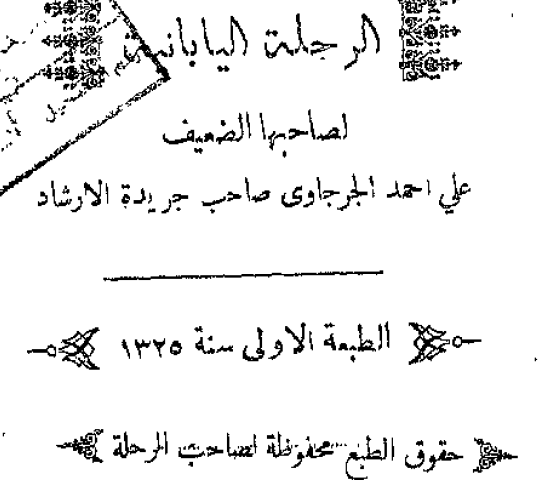 الرحلة اليابانية
لصاحبها الضعيف
علي احمد الجرجاوى صاحب جريدة الارشاد
الطبعة الاولى سنة ١٣٢٥
حقوق الطبع محفوظة لصاحب الرحلة